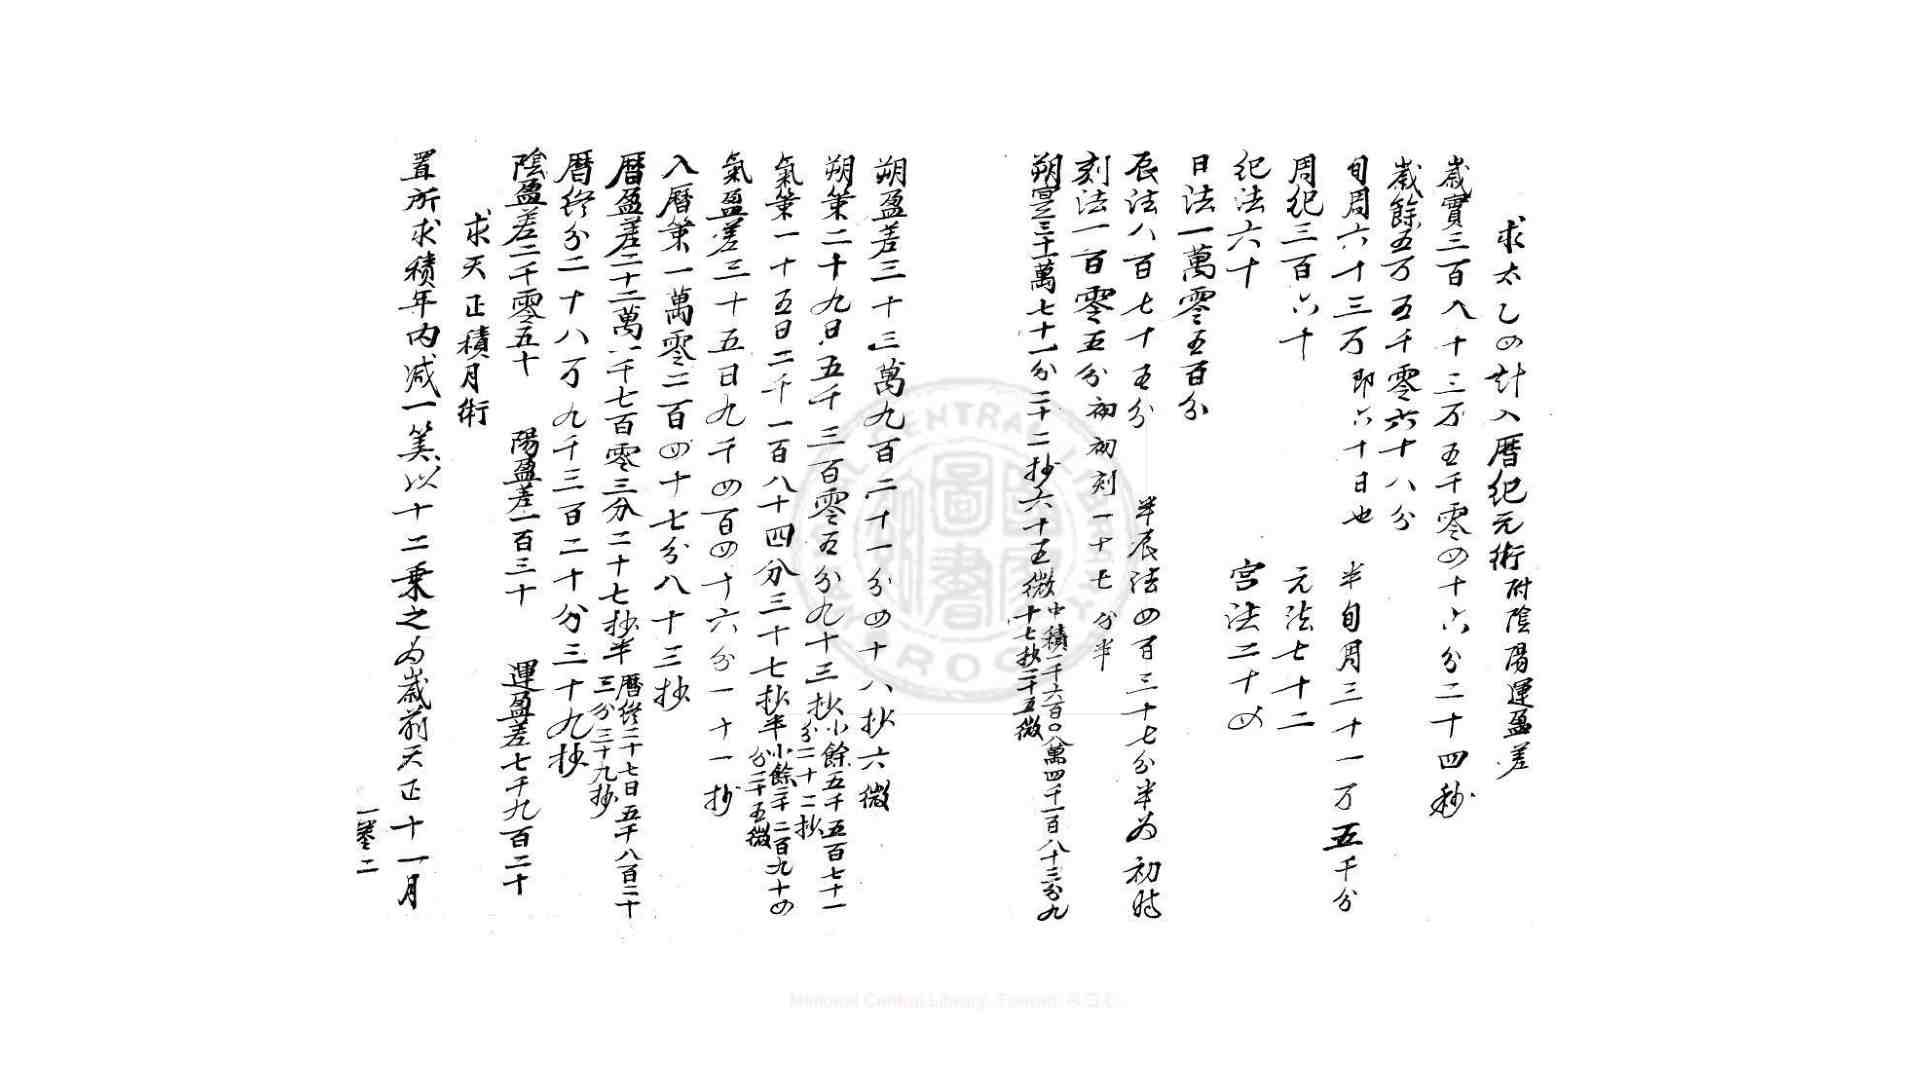 求太乙四計入曆紀元術附陰陽運盈差
歲實三百八十三万五千零四十六分二十四秒
歲餘五万五千零六十八分
旬周六十三万即六十日也 半旬周三十一万五千分
周紀三百六十 元法七十二
紀法六十 宮法二十四
日法一萬零五百分
辰法八百七十五分 半辰法四百三十七分半為初時
刻法一百零五分初初刻一十七分半
朔實三十一萬七十一分二十二抄六十五微中積一千六百〇八萬四千一百八十三分九十七抄二十五微
朔盈差三十三萬九百二十一分四十八抄六微
朔策二十九日五千三百零五分九十三抄小餘五千五百七十一分二十二抄
氣策一十五日二千一百八十四分三十七抄半小餘二千二百九十四分三十五微
氣盈差三十五日九千四百四十六分一十一抄
入曆策一萬零二百四十七分八十三抄
曆盈差二十二萬一千七百零三分二十七抄半曆終二十七日五千八百二十三分三十九抄
曆終分二十八万九千三百二十分三十九抄
陰盈差二千零五十 陽盈差一百三十 運盈差七千九百二十
求天正積月術
置所求積年內减一筭以十二乘之為歲前天正十一月
一 二
National Central Library, Taiwan